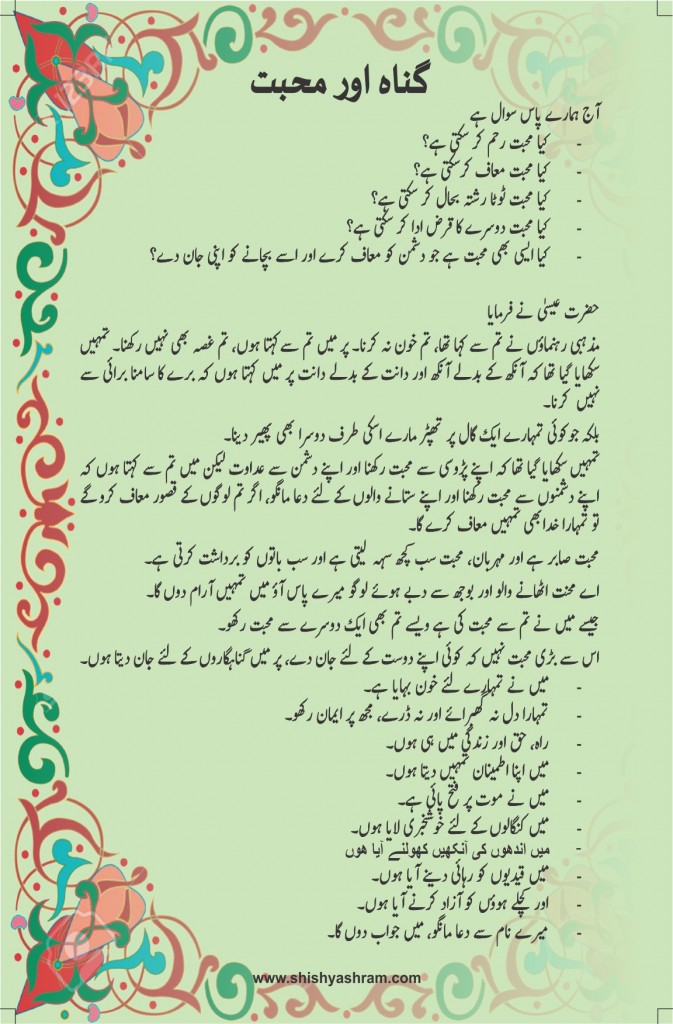 گناہ اور محبت
آج ہمارے پاس سوال ہے
- کیا محبت رحم کر سکتی ہے؟
- کیا محبت معاف کرسکتی ہے؟
- کیا محبت ٹوٹا رشتہ بحال کر سکتی ہے؟
- کیا محبت دوسرے کا قرض ادا کر سکتی ہے؟
- کیا ایسی بھی محبت ہے جو دشمن کو معاف کرے اور اسے بچانے کو اپنی جان دے؟
حضرت عیسیٰ نے فرمایا
مذہبی رہنماؤں نے تم سے کہا تھا، تم خون نہ کرنا۔ پر میں تم سے کہتا ہوں، تم غصہ بھی نہیں رکھنا۔ تمہیں
سکھایا گیا تھا کہ آنکھ کے بدلے آنکھ اور دانت کے بدلے دانت پر میں کہتا ہوں کہ برے کا سامنا برائی سے
نہیں کرنا۔
بلکہ جو کوئی تمہارے ایک گال پر تھپڑ مارے اسکی طرف دوسرا بھی پھیر دینا۔
تمہیں سکھایا گیا تھا کہ اپنے پڑوسی سے محبت رکھنا اور اپنے دشمن سے عداوت لیکن میں تم سے کہتا ہوں کہ
اپنے دشمنوں سے محبت رکھنا اور اپنے ستانے والوں کے لئے دعا مانگو، اگر تم لوگوں کے قصور معاف کروگے
تو تمہارا خدا بھی تمہیں معاف کرے گا۔
محبت صابر ہے اور مہربان، محبت سب کچھ سہہ لیتی ہے اور سب باتوں کو برداشت کرتی ہے۔
اے محنت اٹھانے والو اور بوجھ سے دبے ہوئے لوگو میرے پاس آؤ میں تمہیں آرام دوں گا۔
جیسے میں نے تم سے محبت کی ہے ویسے تم بھی ایک دوسرے سے محبت رکھو۔
اس سے بڑی محبت نہیں کہ کوئی اپنے دوست کے لئے جان دے، پر میں گناہگاروں کے لئے جان دیتا ہوں۔
- میں نے تمہارے لئے خون بہایا ہے۔
- تمہارا دل نہ گھبرائے اور نہ ڈرے، مجھ پر ایمان رکھو۔
- راہ، حق اور زندگی میں ہی ہوں۔
- میں اپنا اطمینان تمہیں دیتا ہوں۔
- میں نے موت پر فتح پائی ہے۔
- میں کنگالوں کے لئے خوشخبری لایا ہوں۔
- میں اندھوں کی آنکھیں کھولنے آیا ہوں
- میں قیدیوں کو رہائی دینے آیا ہوں۔
- اور کچلے ہوؤں کو آزاد کرنے آیا ہوں۔
- میرے نام سے دعا مانگو، میں جواب دوں گا۔
www.shishyashram.com